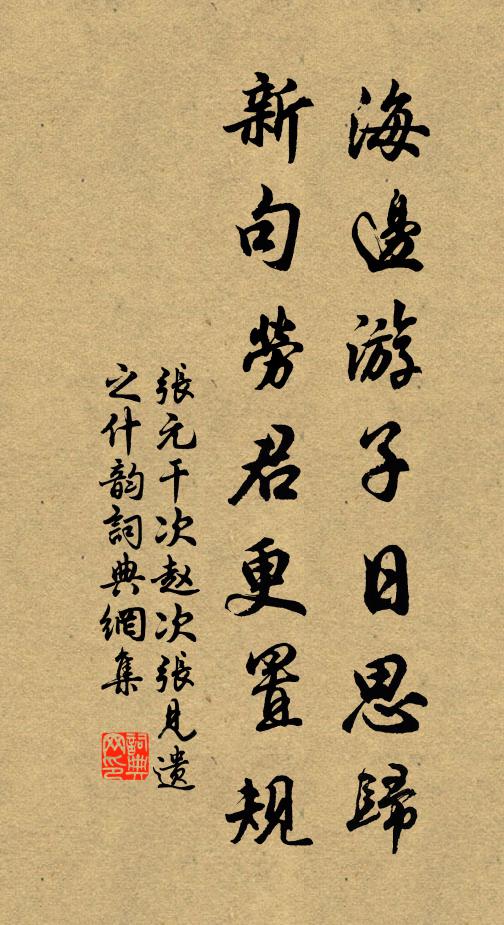 海邊游子日思歸
新句勞君更置規
張元干次赵次張見遗
之什韵詞典網集
詞典
网印